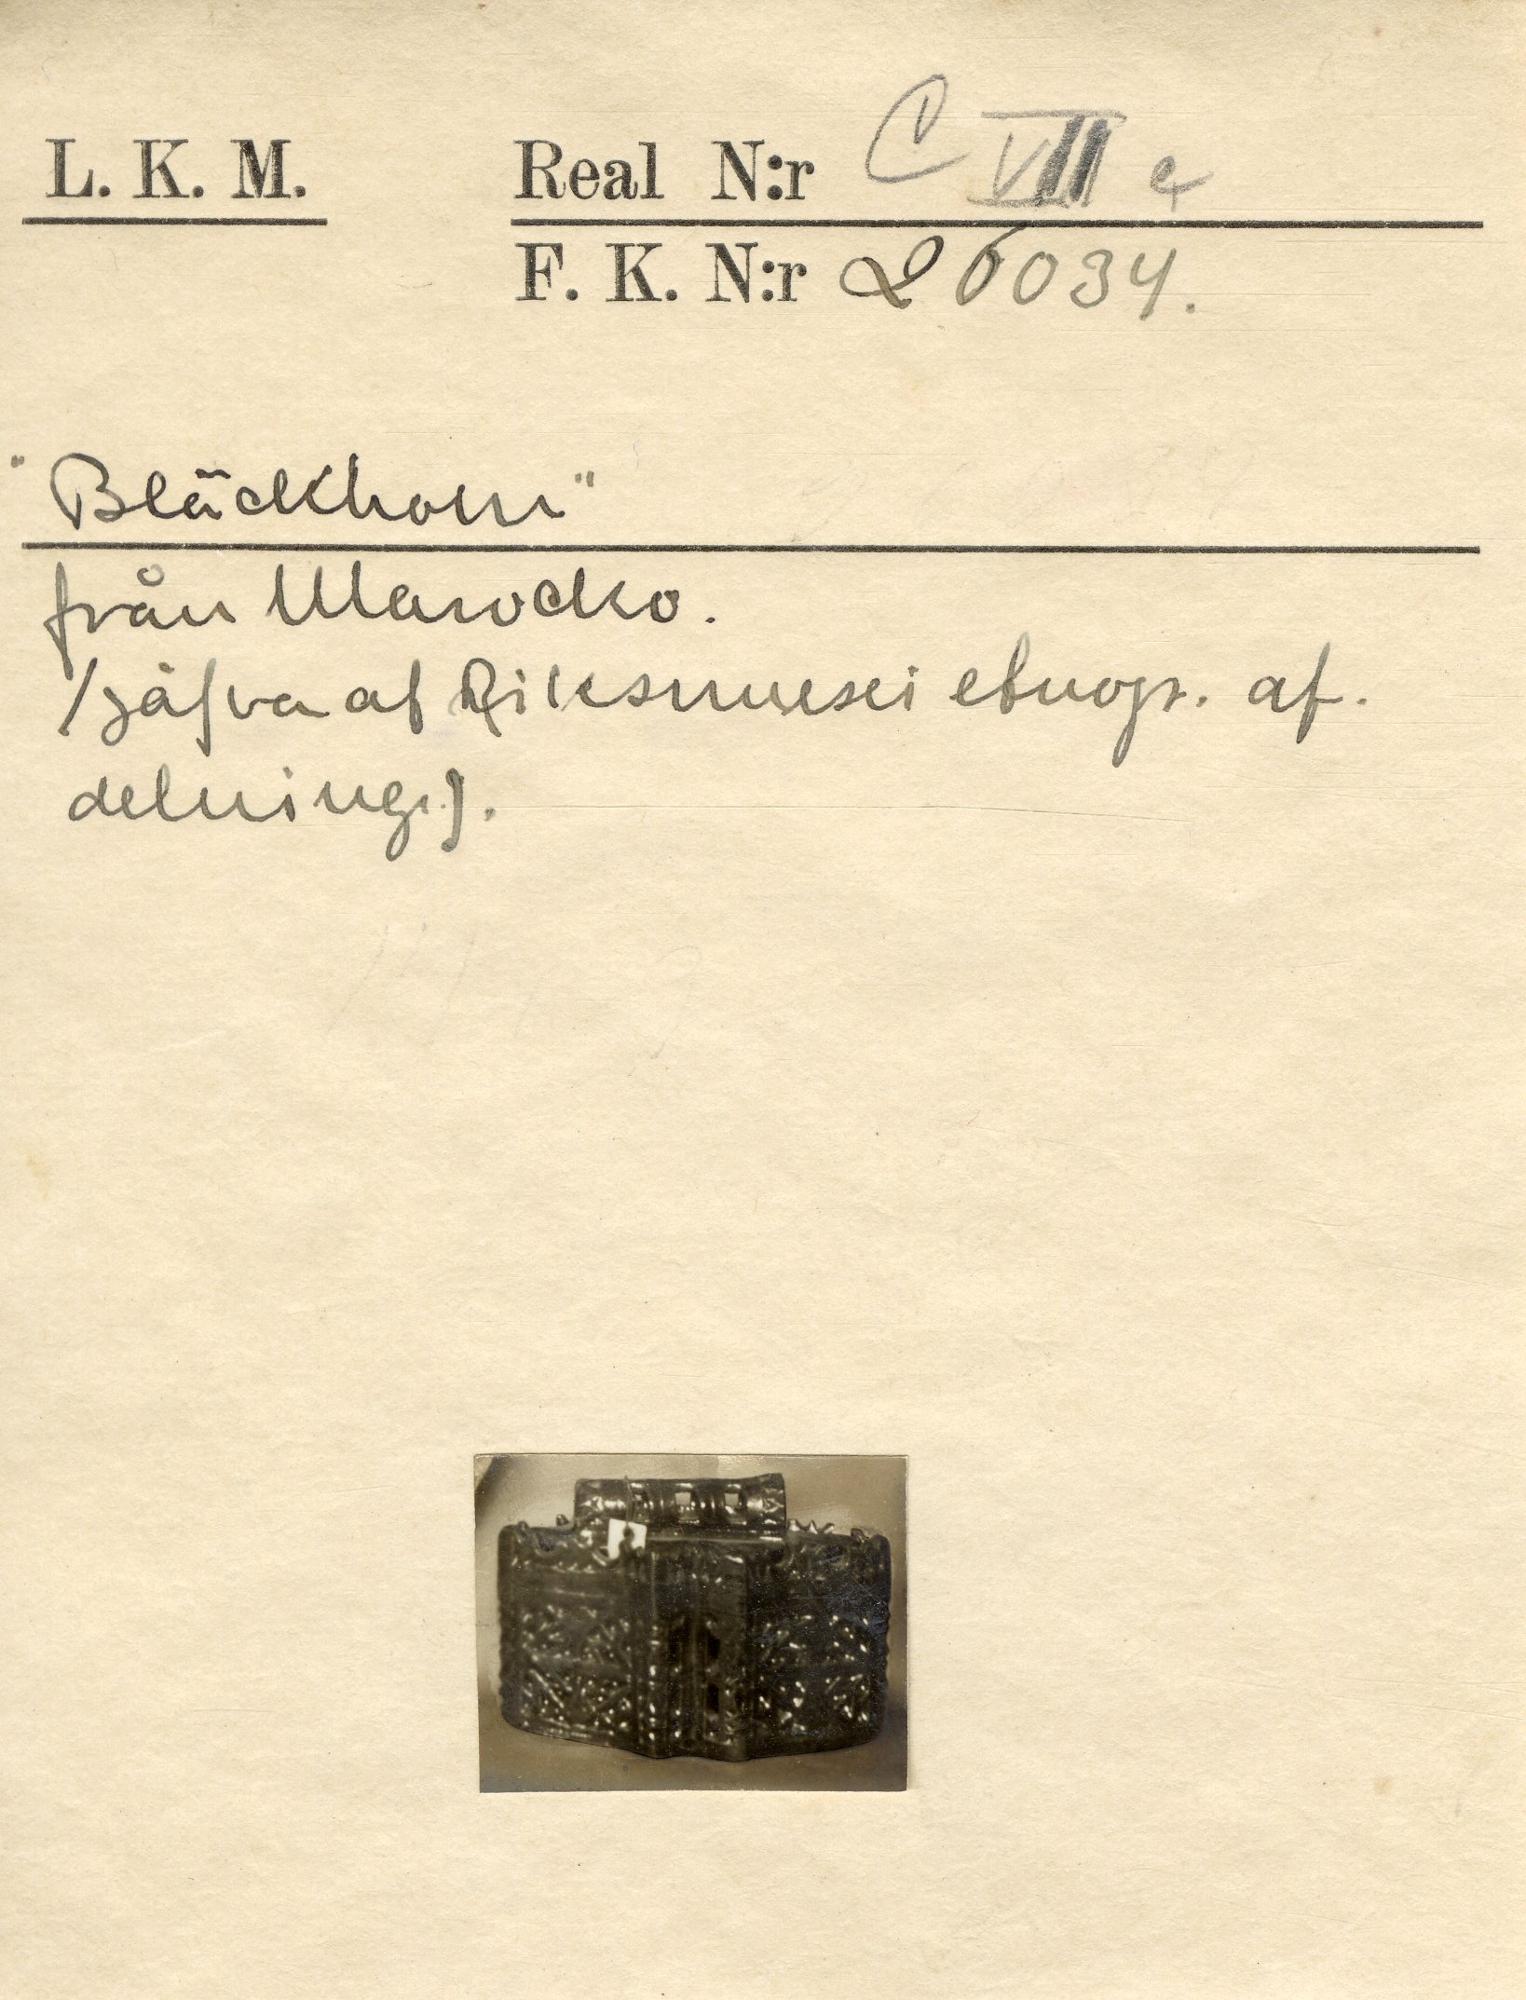 L. K. M. Real N:r C VIII e
F. K. N:r 26034.
"Bläckhorn"
från Marocko.
/gåfva af Riksmusei etnogr. af.
delning.).